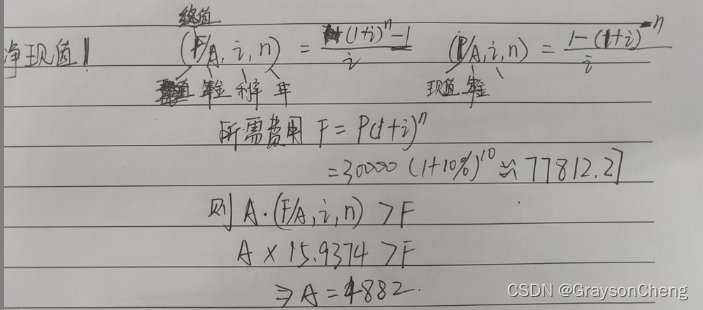 终值
净现值! (F/A, i, n) = (1+i)^n-1 / i (P/A, i, n) = 1-(1+i)^-n / i
年金 利率 年 现值 年金
所需费用 F = P(1+i)^n
=30000 (1+10%)^10 ≈ 77812.27
则 A·(F/A, i, n) > F
A × 15.9374 > F
⇒ A = 4882.
CSDN @GraysonCheng